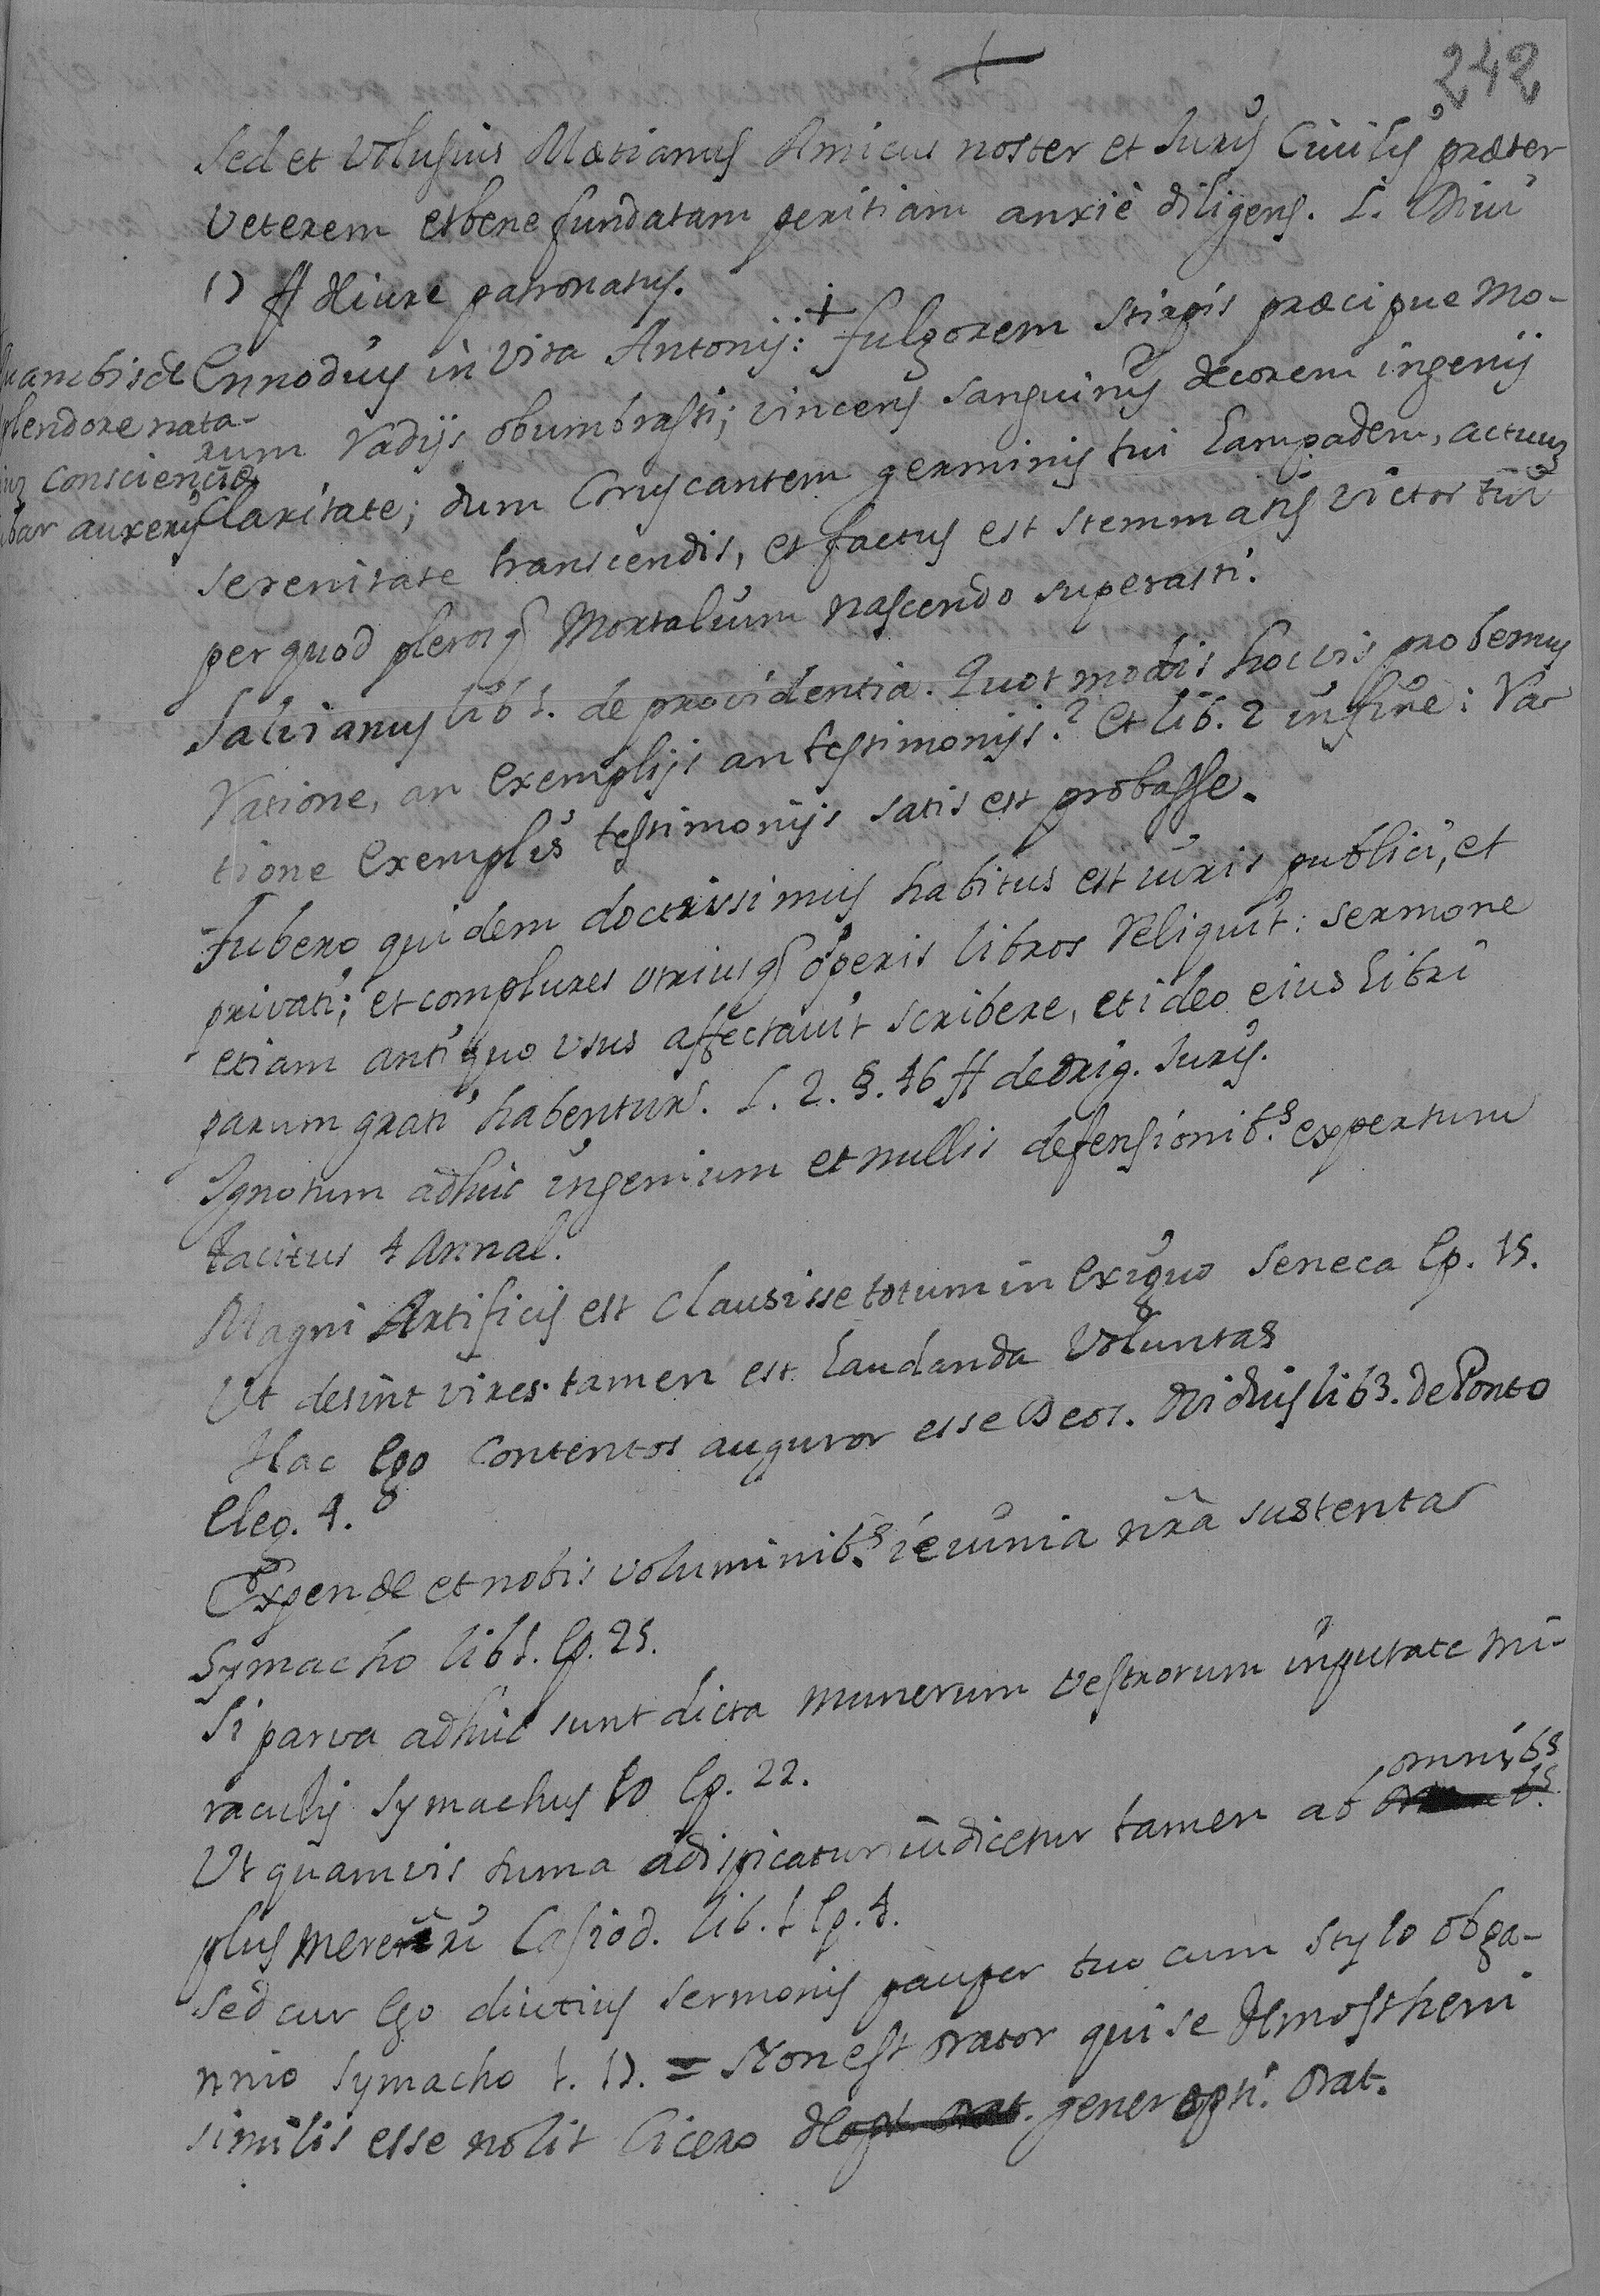 242
Sed et Volusius Mætianus Amicus noster et Juris Civilis præter
veterem et bene fundatam peritiam anxiè diligens. L. Divi
17 ff de iure patronatus.
Ennodius in vita Antonij: + fulgorem stirpis præcipue mo-
rum radijs obumbrasti; vincens sanguinis decorem ingenij
claritate; dum coruscantem germinis tui lampadem, actuum
serenitate transcendis, et factus est stemmatis victor tui
per quod plerosq Mortalium nascendo superasti.
ambis de
splendore nata-
conscienciæ
auxeris
Salvianus lib 1. de providentia. Quot modis hoc vis probemus
Ratione, an exemplijs an testimonijs? et lib. 2 in fine: Ra-
tione exemplis testimonijs satis est probasse.
Tubero quidem doctissimus habitus est iuris publici, et
privati; et complures utriusq operis libros reliquit: sermone
etiam antiquo usus affectavit scribere, et ideo eius libri
parum grati habentur. L. 2. §. 46 ff de Orig. Juris.
Ignotum adhuc ingenium et nullis defensionib.s expertum
tacitus 4 Annal.
Magni Artificis est clausisse totum in exiguo Seneca Ep. 15.
Ut desint vires tamen est laudanda voluntas
Hac Ego contentos auguror esse Deos. Ovidius lib 3. de Ponto
Eleg. 4.
Expende et nobis voluminib.s ieiunia nrã sustenta
Symacho lib 1. Ep. 25.
Si parva adhuc sunt dicta munerum vestrorum inputate mi-
raculis Symachus 10 Ep. 22.
Ut quamvis suma adispicatur iudicetur tamen ab omnibs
plus mereri Casiod. lib. 1 Ep. 4.
Sed cur Ego diutius sermonis pauper tuo cum stylo obga-
nnio Symacho 1. 1). = Non est orator qui se demostheni
similis esse nolit Cicero de gener opti. Orat.